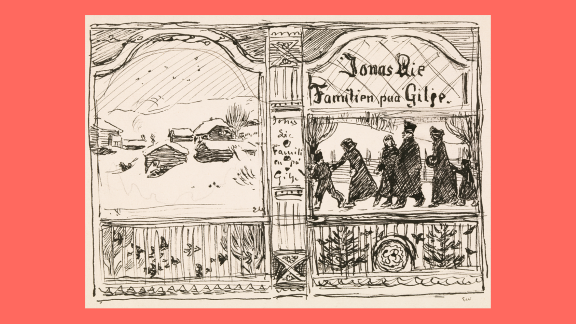 Jonas Lie
Familien paa Gilje.
Jonas
Lie
Famili
en på
Gilje